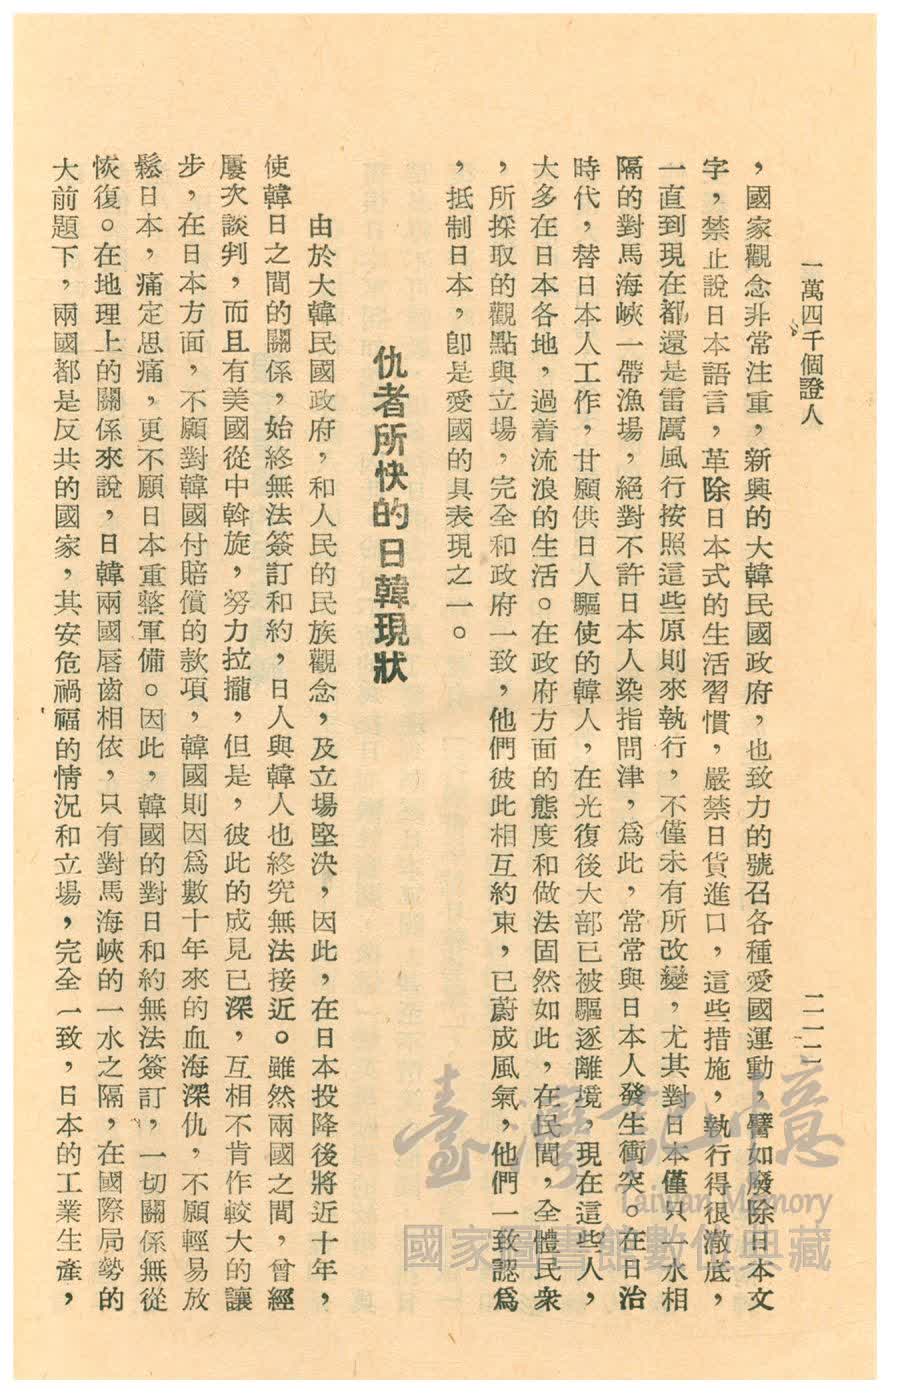 一萬四千個證人
二一二
，國家觀念非常注重，新興的大韓民國政府，也致力的號召各種愛國運動，譬如廢除日本文
字，禁止說日本語言，革除日本式的生活習慣，嚴禁日貨進口，這些措施，執行得很澈底，
一直到現在都還是雷厲風行按照這些原則來執行，不僅未有所改變，尤其對日本僅只一水相
隔的對馬海峽一帶漁場，絕對不許日本人染指問津，爲此，常常與日本人發生衝突。在日治
時代，替日本人工作，甘願供日人驅使的韓人，在光復後大部已被驅逐離境，現在這些人，
大多在日本各地，過着流浪的生活。在政府方面的態度和做法固然如此，在民間，全體民衆
，所採取的觀點與立場，完全和政府一致，他們彼此相互約束，已蔚成風氣，他們一致認爲
，抵制日本，卽是愛國的具表現之一。
仇者所快的日韓現狀
由於大韓民國政府，和人民的民族觀念，及立場堅決，因此，在日本投降後將近十年，
使韓日之間的關係，始終無法簽訂和約，日人與韓人也終究無法接近。雖然兩國之間，曾經
屢次談判，而且有美國從中斡旋，努力拉攏，但是，彼此的成見已深，互相不肯作較大的讓
步，在日本方面，不願對韓國付賠償的款項，韓國則因爲數十年來的血海深仇，不願輕易放
鬆日本，痛定思痛，更不願日本重整軍備。因此，韓國的對日和約無法簽訂，一切關係無從
恢復。在地理上的關係來說，日韓兩國唇齒相依，只有對馬海峽的一水之隔，在國際局勢的
大前題下，兩國都是反共的國家，其安危禍福的情況和立場，完全一致，日本的工業生產，
臺灣記憶
Taiwan Memory
國家圖書館數位典藏